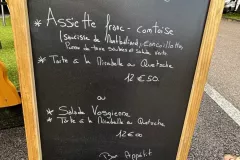 * Assiette franc-comtoise
(saucisse de Montbéliard, cancoillotte,
Pomme de terre sautées et salade verte
* Tarte à la Mirabelle ou Quetsche
12 € 50
ou
* Salade Vosgienne
* Tarte à la Mirabelle ou Quetsche
12 € 00
Bon Appétit